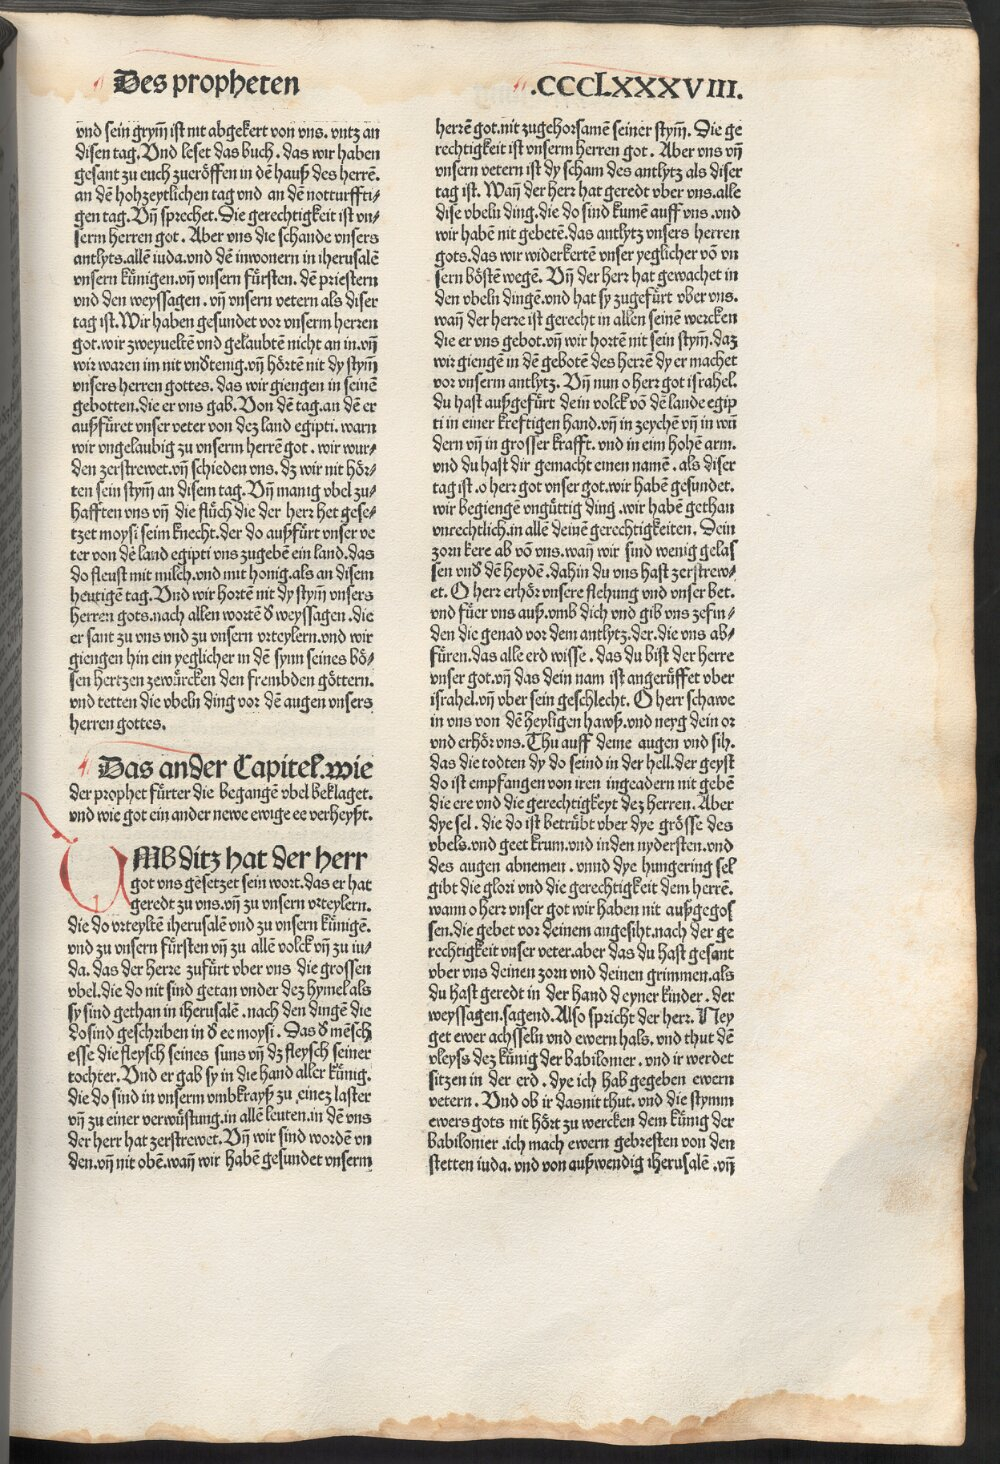 Des propheten
.CCCLXXXVIII.
vnd sein grym̄ ist nit abgekert von vns. vntz an
disen tag. Vnd leset das buch. das wir haben
gesant zu euch zueröffen in dē hauß des herrē.
an dē hohzeytlichen tag vnd an dē notturffti⸗
gen tag. Vn̄ sprechet. Die gerechtigkeit ist vn⸗
serm herren got. Aber vns die schande vnsers
antlyts. allē iuda. vnd dē inwonern in iherusalē
vnsern künigen. vn̄ vnsern fürsten. dē priestern
vnd den weyssagen. vn̄ vnsern vetern als diser
tag ist. Wir haben gesundet vor vnserm herren
got. wir zweyueltē vnd gelaubtē nicht an in. vn̄
wir waren im nit vnðtenig. vn̄ hörtē nit dy stym̄
vnsers herren gottes. das wir giengen in seinē
gebotten. die er vns gab. Von dē tag. an dē er
außfüret vnser veter von dez land egipti. warn
wir vngelaubig zu vnserm herrē got. wir wur⸗
den zerstrewet. vn̄ schieden vns. dz wir nit hör⸗
ten sein stym̄ an disem tag. Vn̄ manig vbel zu⸗
hafften vns vn̄ die flüch die der herr het gese⸗
tzet moysi seim knecht. der do außfürt vnser ve
ter von dē land egipti vns zugebē ein land. das
do fleust mit milch. vnd mit honig. als an disem
heutigē tag. Vnd wir hortē nit dy stym̄ vnsers
herren gots. nach allen wortē ð weyssagen. die
er sant zu vns vnd zu vnsern vrteylern. vnd wir
giengen hin ein yeglicher in dē synn seines bö⸗
sen hertzen zewürcken den frembden göttern.
vnd tetten die vbeln ding vor dē augen vnsers
herren gottes.
Das ander Capitel. wie
der prophet fürter die begangē vbel beklaget.
vnd wie got ein ander newe ewige ee verheyßt.
VMB ditz hat der herr
got vns gesetzet sein wort. das er hat
geredt zu vns. vn̄ zu vnsern vrteylern.
die do vrteyltē iherusalē vnd zu vnsern künigē.
vnd zu vnsern fürsten vn̄ zu allē volck vn̄ zu iu⸗
da. das der herre zufürt vber vns die grossen
vbel. die do nit sind getan vnder dez hymel als
sy sind gethan in iherusalē. nach den dingē die
do sind geschriben in ð ee moysi. Das ð mēsch
esse die fleysch seines suns vn̄ dz fleysch seiner
tochter. Vnd er gab sy in die hand aller künig.
die do sind in vnserm vmbkrayß zu einez laster
vn̄ zu einer verwüstung. in allē leuten. in dē vns
der herr hat zerstrewet. Vn̄ wir sind wordē vn
den. vn̄ nit obē. wan̄ wir habē gesundet vnserm
herrē got. nit zugehorsamē seiner stym̄. Die ge
rechtigkeit ist vnserm herren got. Aber vns vn̄
vnsern vetern ist dy scham des antlytz als diser
tag ist. Wan̄ der herr hat geredt vber vns. alle
dise vbeln ding. die do sind kumē auff vns. vnd
wir habē nit gebetē. das antlytz vnsers herren
gots. das wir widerkertē vnser yeglicher vō vn
sern böstē wegē. Vn̄ der herr hat gewachet in
den vbeln dingē. vnd hat sy zugefürt vber vns.
wan̄ der herre ist gerecht in allen seinē wercken
die er vns gebot. vn̄ wir hortē nit sein stym̄. daz
wir giengē in dē gebotē des herrē dy er machet
vor vnserm antlytz. Vn̄ nun o herr got israhel.
du hast außgefürt dein volck vō dē lande egip
ti in einer kreftigen hand. vn̄ in zeychē vn̄ in wū
dern vn̄ in grosser krafft. vnd in eim hohē arm.
vnd du hast dir gemacht einen namē. als diser
tag ist. o herr got vnser got. wir habē gesundet.
wir begiengē vngüttig ding. wir habē gethan
vnrechtlich. in allē deinē gerechtigkeiten. Dein
zorn kere ab vō vns. wan̄ wir sind wenig gelas
sen vnð dē heydē. dahin du vns hast zerstrew⸗
et. O herr erhör vnsere flehung vnd vnser bet.
vnd füer vns auß. vmb dich vnd gib vns zefin⸗
den die genad vor dem antlytz. der. die vns ab⸗
füren. das alle erd wisse. das du bist der herre
vnser got. vn̄ das dein nam ist angerüffet vber
israhel. vn̄ vber sein geschlecht. O herr schawe
in vns von dē heyligen hawß. vnd neyg dein or
vnd erhör vns. Thu auff deine augen vnd sih.
das die todten dy do seind in der hell. der geyst
do ist empfangen von iren ingeadern nit gebē
die ere vnd die gerechtigkeyt dez herren. Aber
dye sel. die do ist betrübt vber dye grösse des
vbels. vnd geet krum. vnd in den nydersten. vnd
des augen abnemen. vnnd dye hungering sel
gibt die glori vnd die gerechtigkeit dem herrē.
wann o herr vnser got wir haben nit außgegos
sen. die gebet vor deinem angesiht. nach der ge
rechtigkeit vnser veter. aber das du hast gesant
vber vns deinen zorn vnd deinen grimmen. als
du hast geredt in der hand deyner kinder. der
weyssagen. sagend. Also spricht der herr. Ney
get ewer achsseln vnd ewern hals. vnd thut dē
vleyss dez künig der babilonier. vnd ir werdet
sitzen in der erd. dye ich hab gegeben ewern
vetern. Vnd ob ir das nit thut. vnd die stymm
ewers gots nit hört zu wercken dem künig der
babilonier. ich mach ewern gebresten von den
stetten iuda. vnd von außwendig iherusalē. vn̄